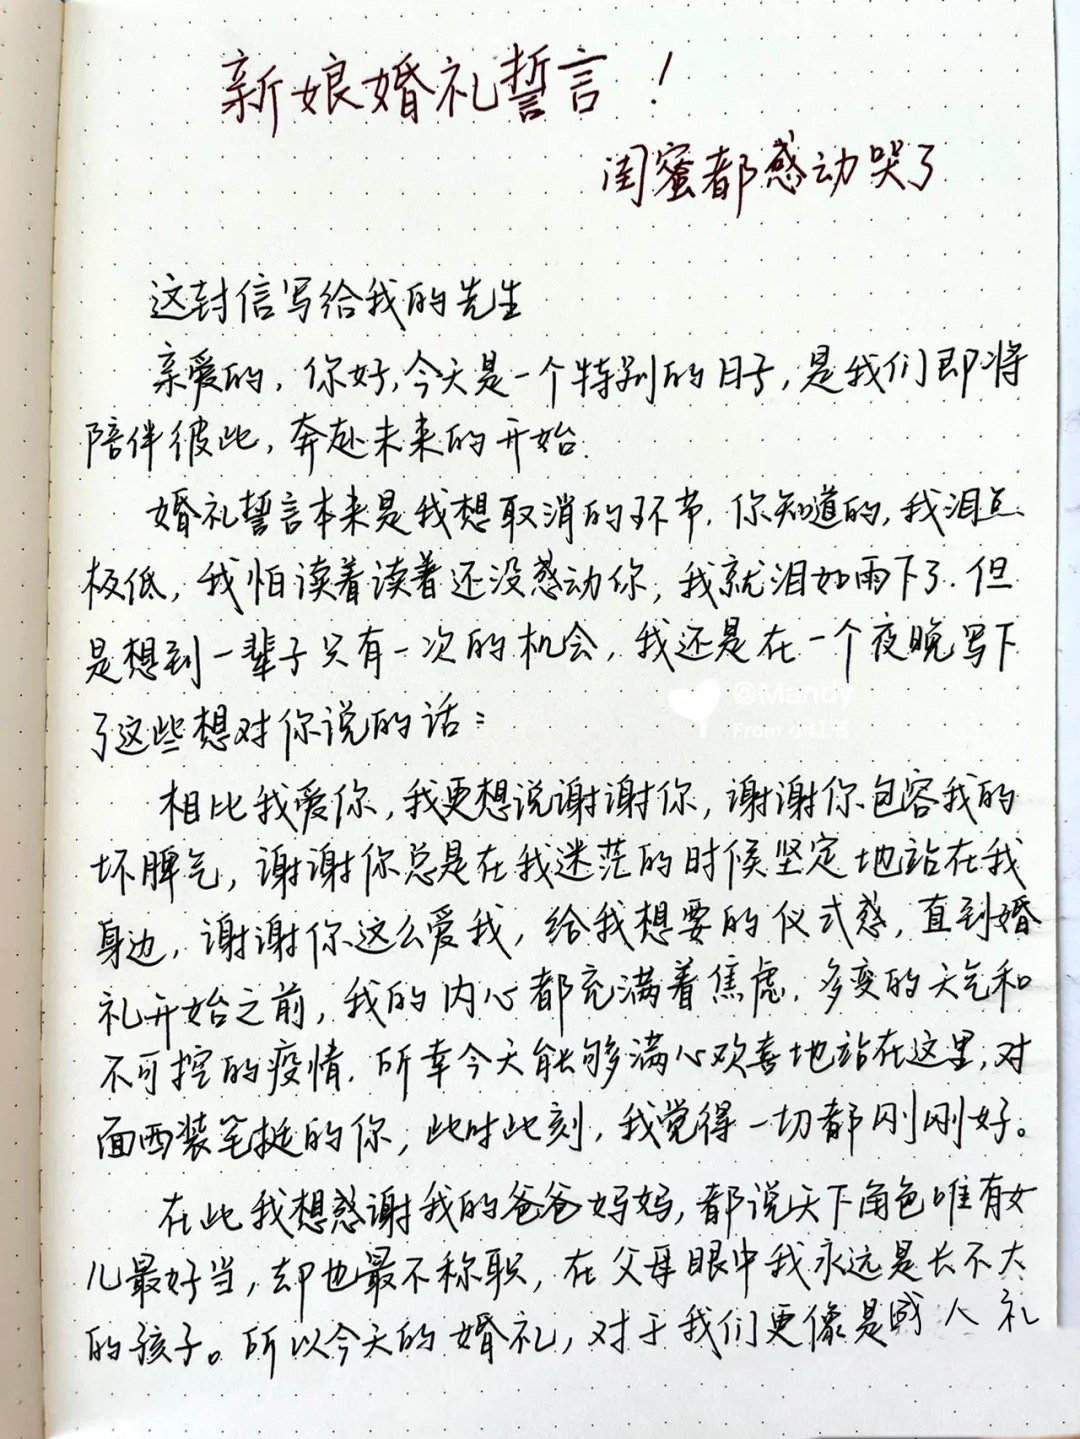 新娘婚礼誓言！
闺蜜都感动哭了
这封信写给我的先生
亲爱的，你好，今天是一个特别的日子，是我们即将
陪伴彼此，奔赴未来的开始.
婚礼誓言本来是我想取消的环节，你知道的，我泪点
极低，我怕读着读着还没感动你，我就泪如雨下了.但
是想到一辈子只有一次的机会，我还是在一个夜晚写下
了这些想对你说的话：
@iMandy
From 小红书
相比我爱你，我更想说谢谢你，谢谢你包容我的
坏脾气，谢谢你总是在我迷茫的时候坚定地站在我
身边，谢谢你这么爱我，给我想要的仪式感，直到婚
礼开始之前，我的内心都充满着焦虑，多变的天气和
不可控的疫情，所幸今天能够满心欢喜地站在这里，对
面西装笔挺的你，此时此刻，我觉得一切都刚刚好。
在此我想感谢我的爸爸妈妈，都说天下角色唯有女
儿最好当，却也最不称职，在父母眼中我永远是长不大
的孩子。所以今天的婚礼，对于我们更像是成人礼